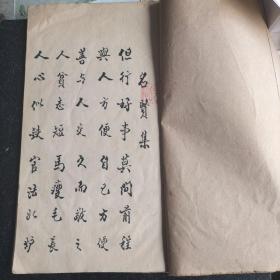 名贤集
但行好事莫问前程
與人方便自己方便
善与人交久而敬之
人贫志短馬瘦毛長
人心似鐵官法如炉